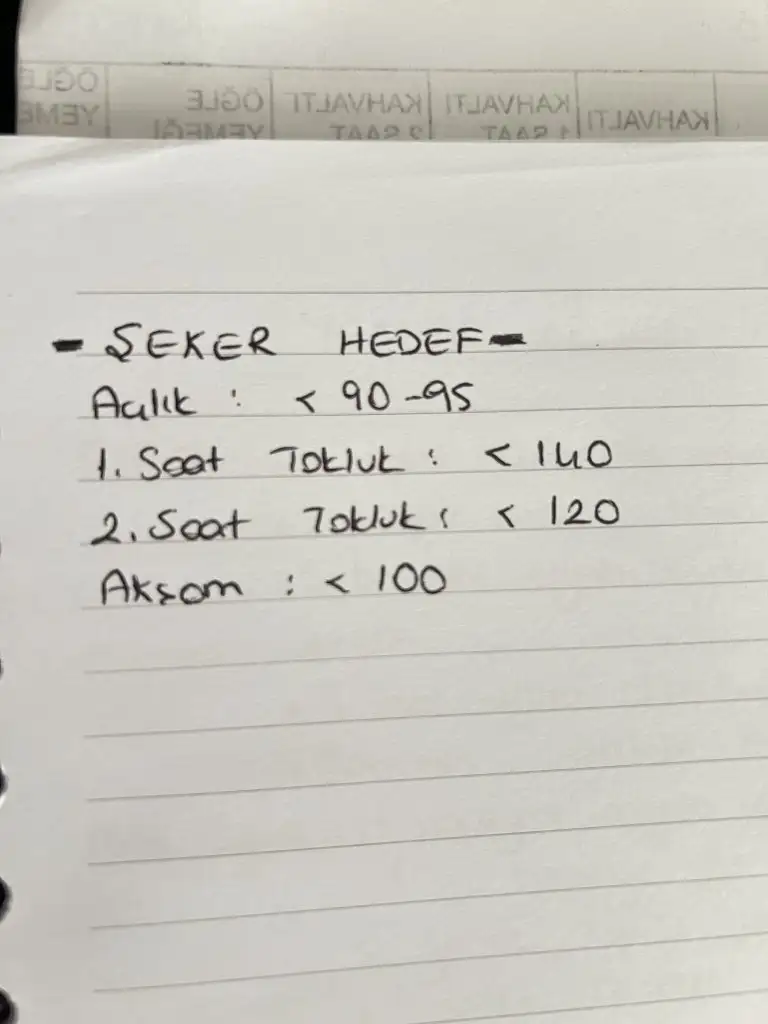 ÖĞLE ÖĞLE KAHVALTI KAHVALTI KAHVALTI
YEME YEMEĞİ 2 SAAT 1 SAAT
- ŞEKER HEDEF -
Açlık : < 90-95
1. Saat Tokluk : < 140
2. Saat Tokluk : < 120
Akşam : < 100